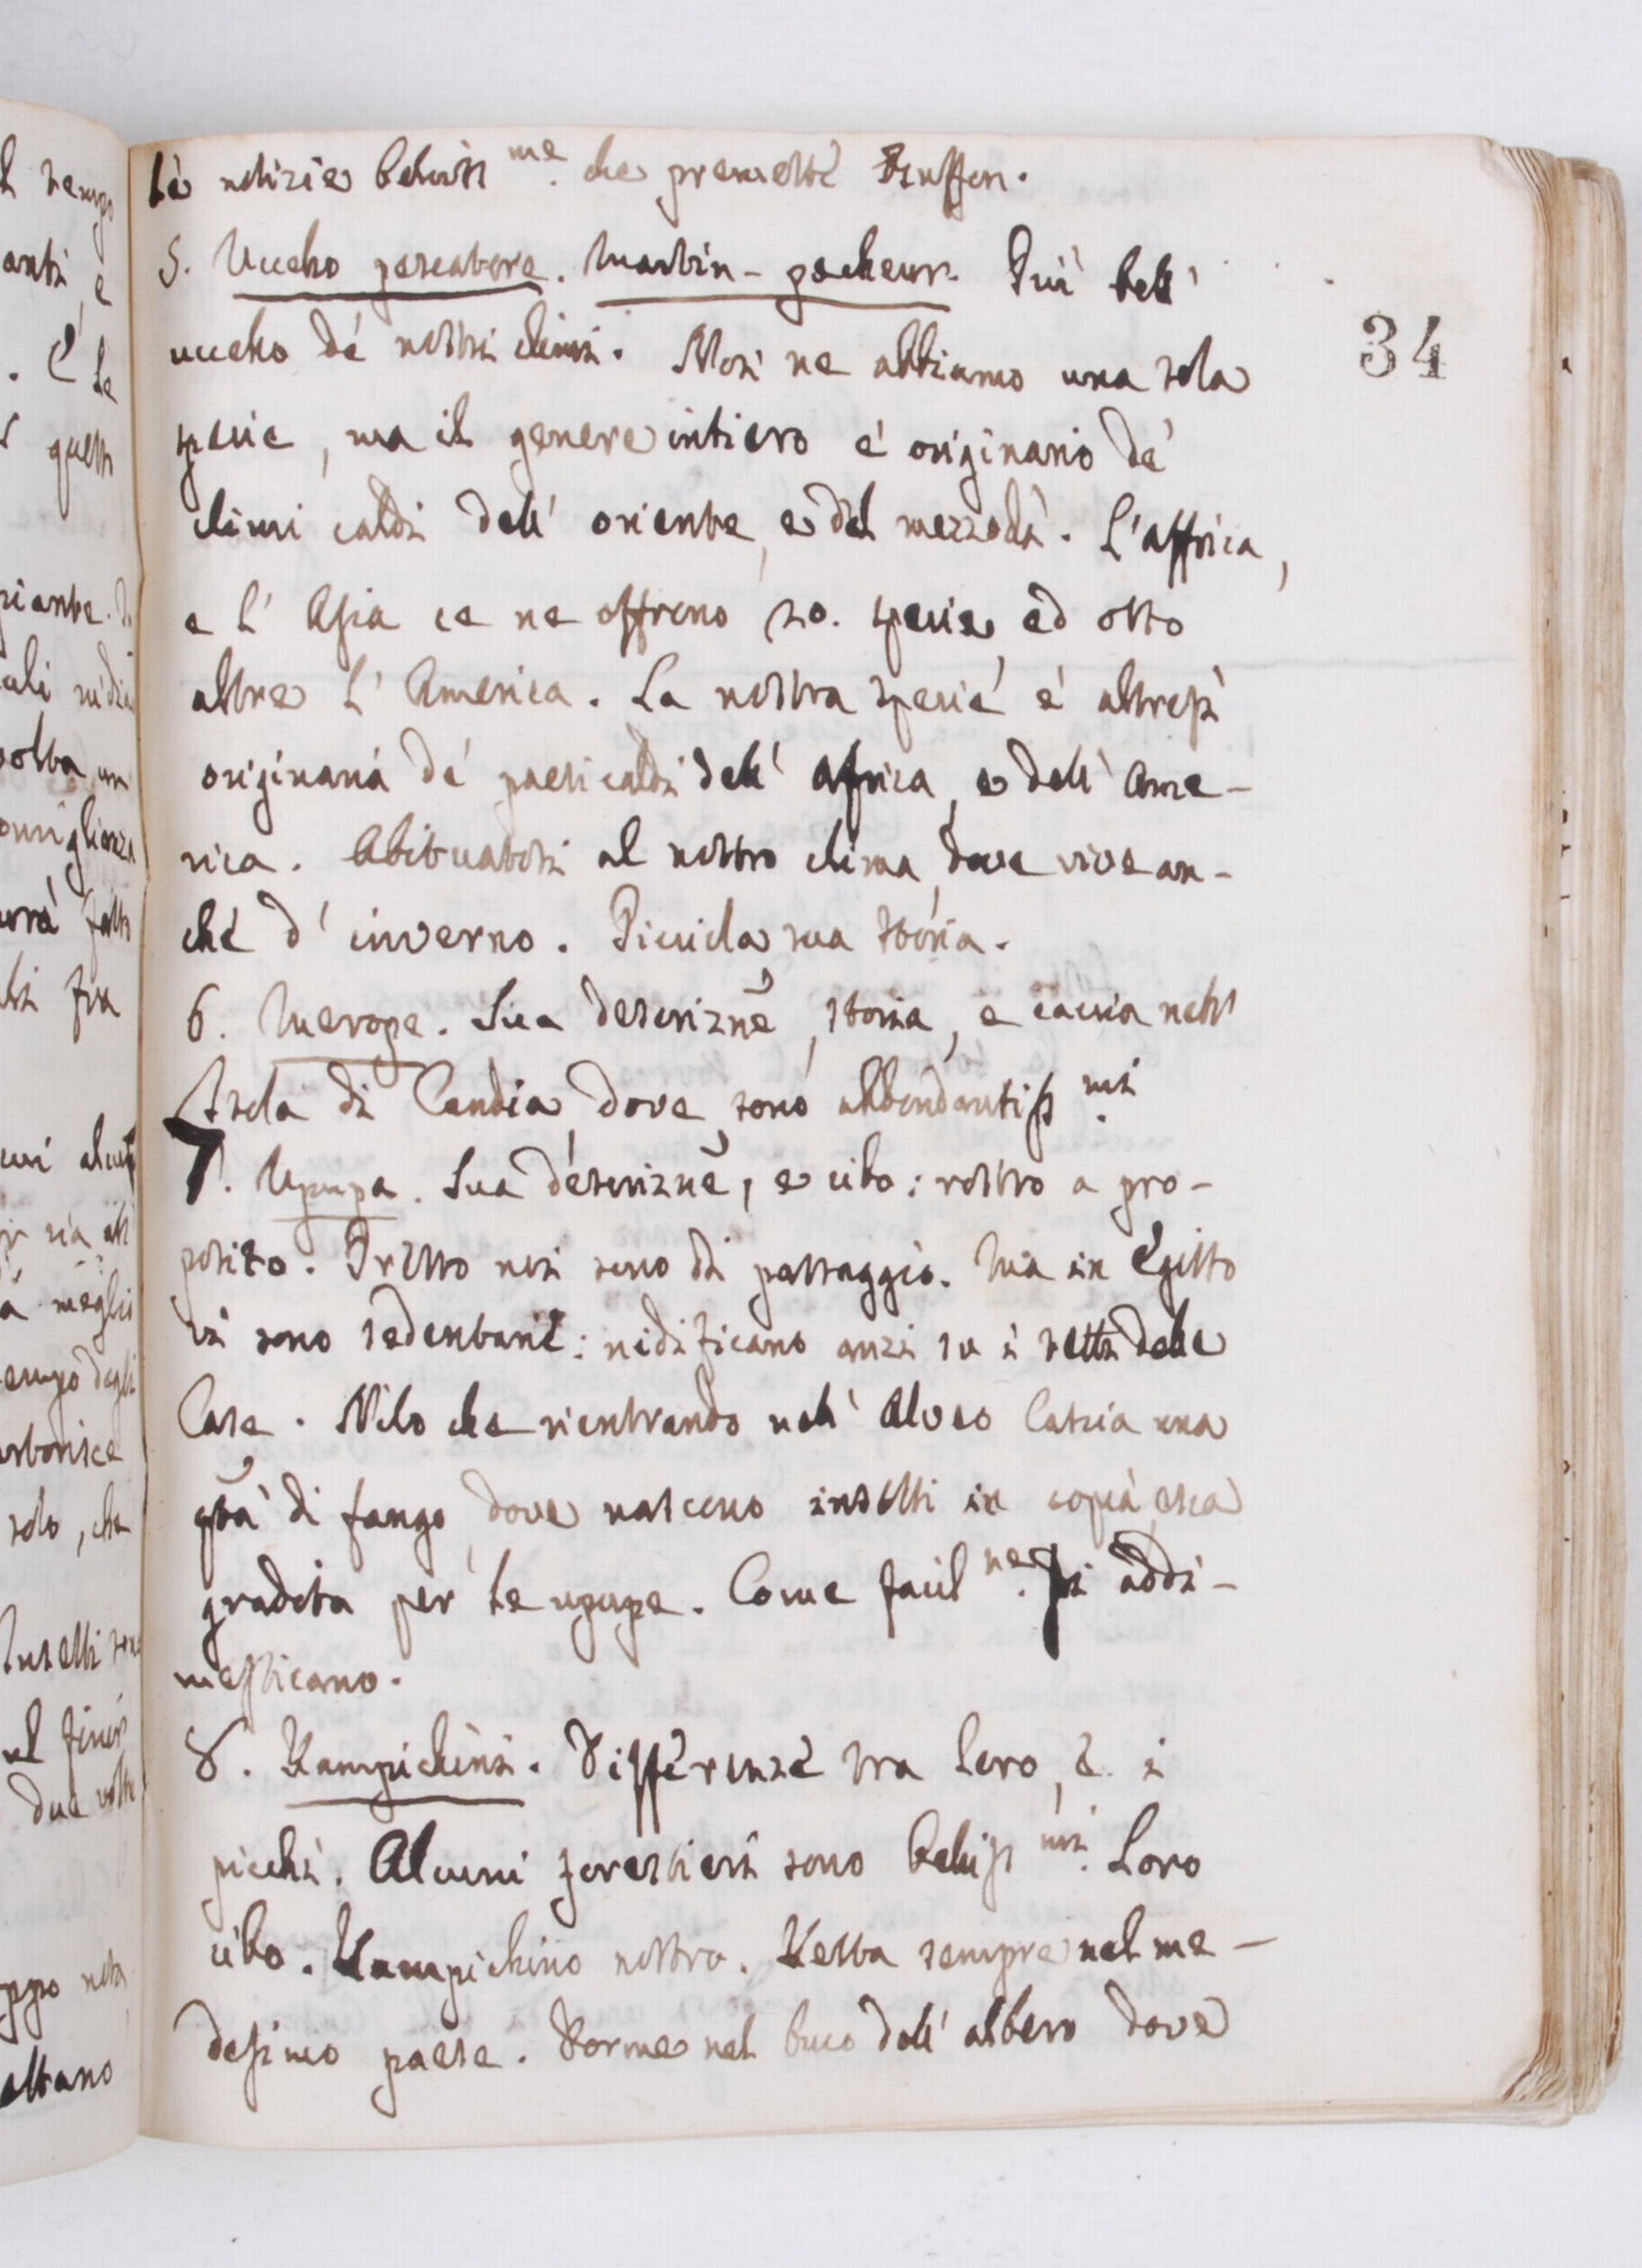 le notizie belliss.me che premette Buffon.
5. Uccello pescatore. Martin-pecheur. Più bell'
uccello de' nostri climi. Noi ne abbiamo una sola
specie, ma il genere intiero è originario de'
climi caldi dell' oriente, e del mezzodì. L'affrica,
e l' Asia ce ne offrono 20. specie, ed otto
altre l' America. La nostra specie è altresì
originaria de' paesi caldi dell' Africa, e dell' Ame-
rica. Abituatosi al nostro clima, dove vive an-
che d' inverno. Piccola sua storia.
6. Merope. Sua descrizne, storia, e caccia nell'
Isola di Candia, dove sono abbondantiss.mi
7. Upupa. Sua descrizne, e cibo: rostro a pro-
posito. Presso noi sono di passaggio. Ma in Egitto
vi sono sedentarie: nidificano anzi su i tetti delle
Case. Nilo che rientrando nell' alveo lascia una
qtà di fango, dove nascono insetti in copia, esca
gradita per le upupe. Come facil.ne si addi-
mesticano.
8. Rampichini. Differenze tra loro, e i
picchi. Alcuni forestieri sono belliss.mi. Loro
cibo. Rampichino nostro. Resta sempre nel me-
desimo paese. Dorme nel buco dell' albero dove
34